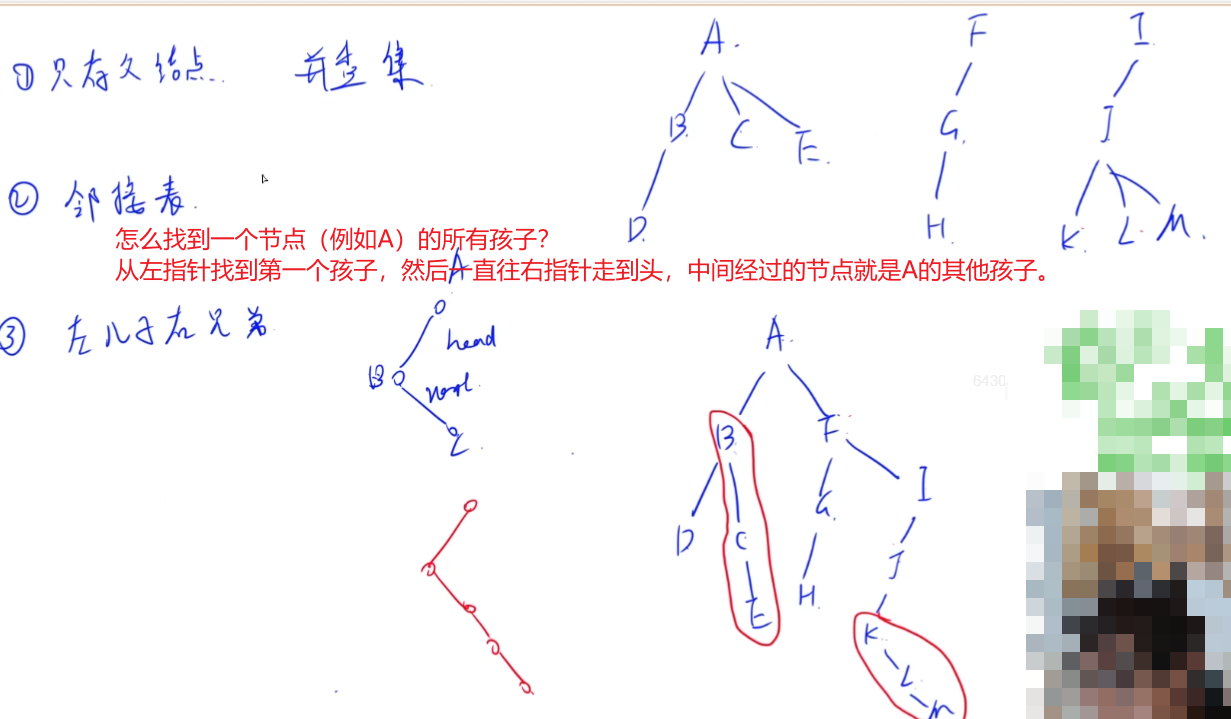 ① 只存父结点 并查集
② 邻接表
怎么找到一个节点（例如A）的所有孩子？
从左指针找到第一个孩子，然后一直往右指针走到头，中间经过的节点就是A的其他孩子。
③ 左儿子右兄弟
A
B C E
D
F
G
H
I
J
K L M
A
head
B
next
A
B F
D C G I
E H J
K
L
M
6430